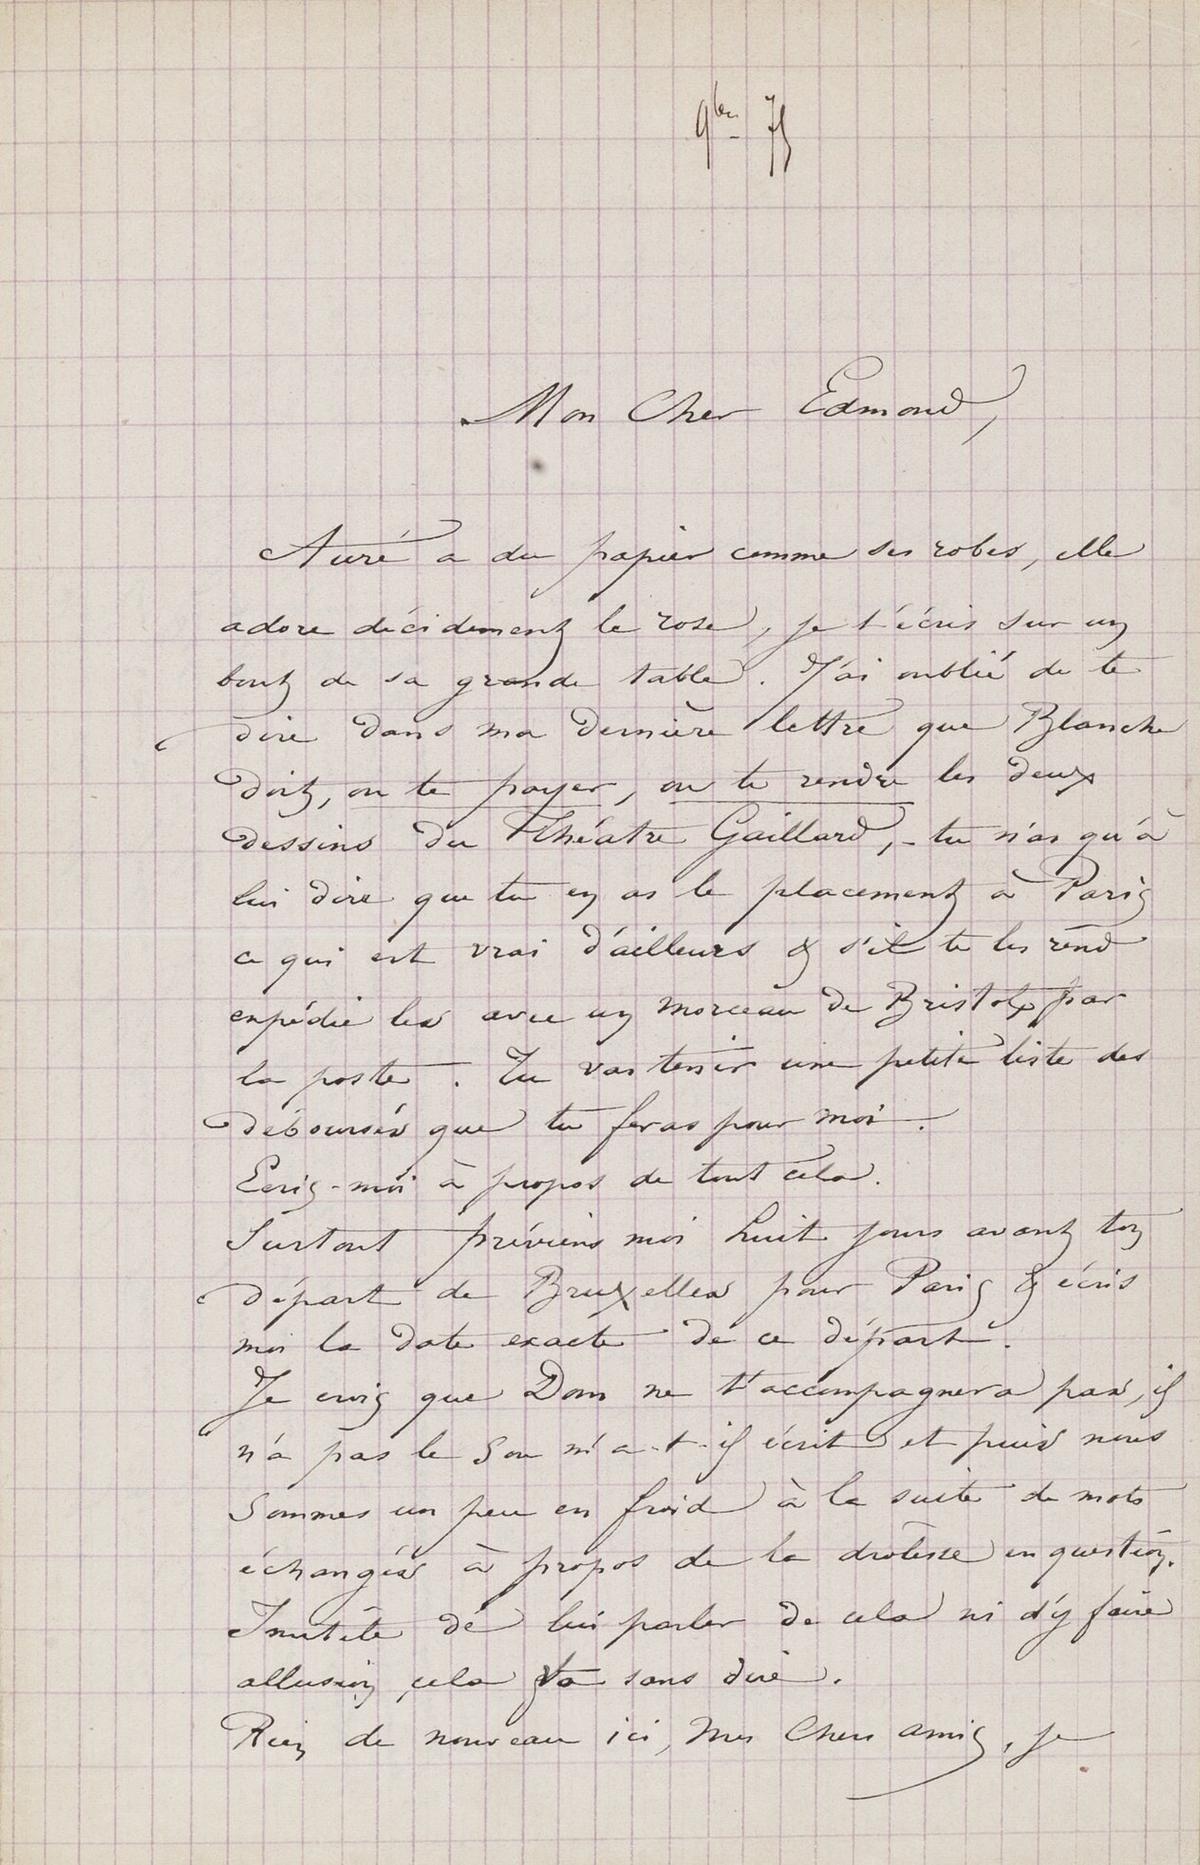 9bre 75
Mon Cher Edmond,
Auré a du papier comme ses robes, elle
adore décidement le rose, je t'écris sur un
bout de sa grande table. J'ai oublié de te
dire dans ma dernière lettre que Blanche
doit, ou te payer, ou te rendre les deux
dessins du Théatre Gaillard, - tu n'as qu'à
lui dire que tu en as le placement à Paris
ce qui est vrai d'ailleurs & s'il te les rend
expédie les avec un morceau de Bristol par
la poste. Tu vas tenir une petite liste des
déboursés que tu feras pour moi.
Ecris-moi à propos de tout cela.
Surtout préviens moi huit jours avant ton
départ de Bruxelles pour Paris & écris
moi la date exacte de ce départ.
Je crois que Dom ne t'accompagnera pas, il
n'a pas le sou m'a-t-il écrit et puis nous
sommes un peu en froid à la suite de mots
échangés à propos de la drôlesse en question.
Inutile de lui parler de cela ni d'y faire
allusion, cela va sans dire.
Rien de nouveau ici, mes chers amis, je